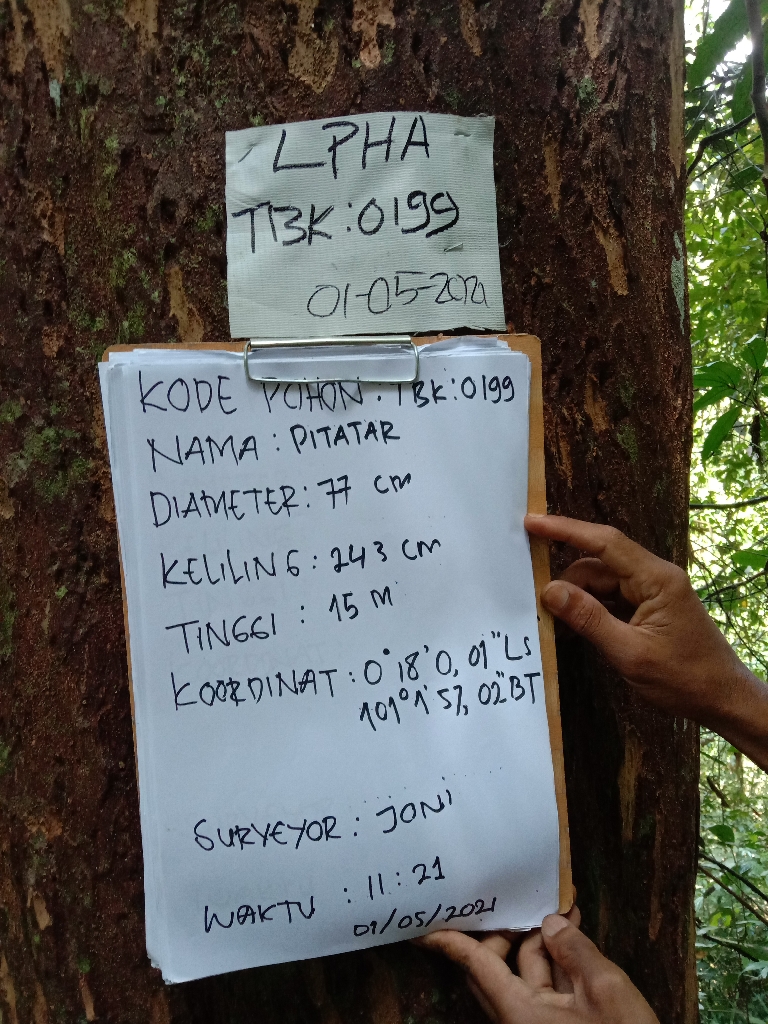 LPHA
TBK:0199
01-05-2021
KODE POHON : TBK:0199
NAMA : PITATAR
DIAMETER : 77 cm
KELILING : 243 cm
TINGGI : 15 M
KOORDINAT : 0°18'0,01"LS
101°1'57,02"BT
SURVEYOR : JONI
WAKTU : 11:21
01/05/2021